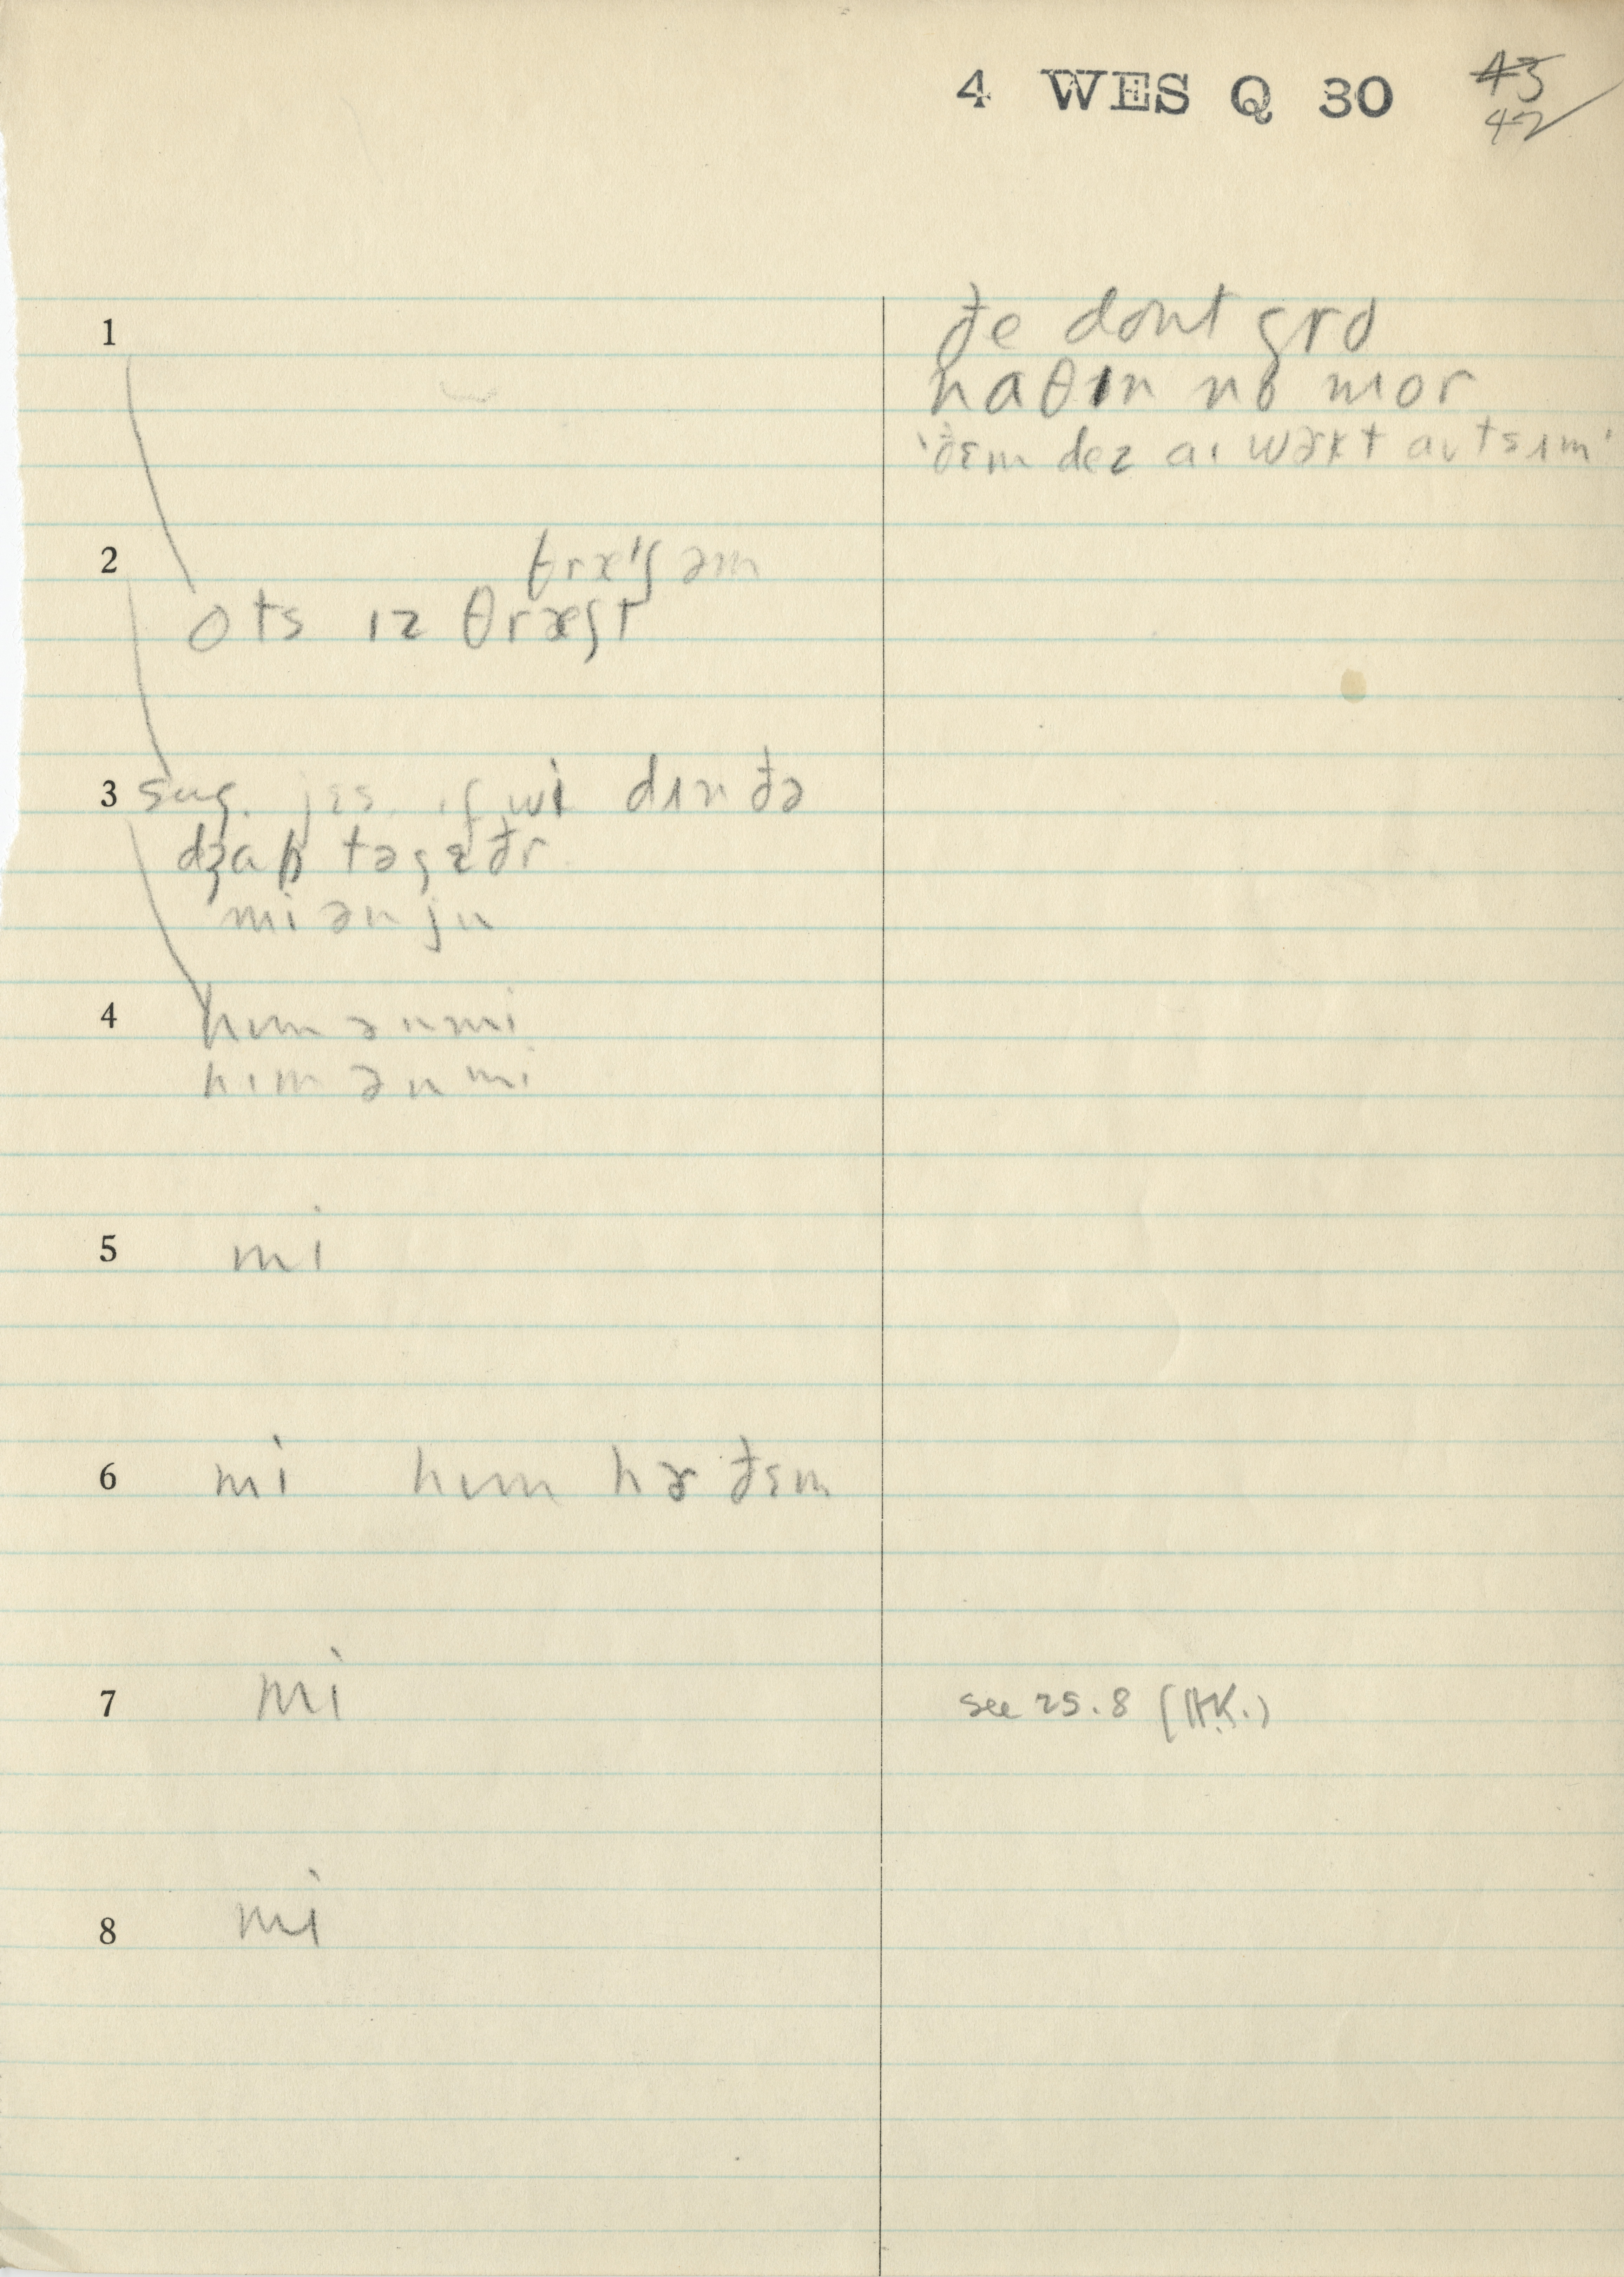 4 WES Q 30
43
42
1
ðe dont gro
naθɪn no mor
ðɛm dez aɪ wɝkt aʊtsɪm
2
θræʃəm
ots ɪz θræʃt
3 sug. jɛs. ɪf wi dɪn ðə
dʒap təgɛðr
mi ən ju
4 hɪm ən mi
hɪm ən mi
5 mi
6 mi hɪm hɚ ðɛm
7 mi
see 25.8 (AK.)
8 mi